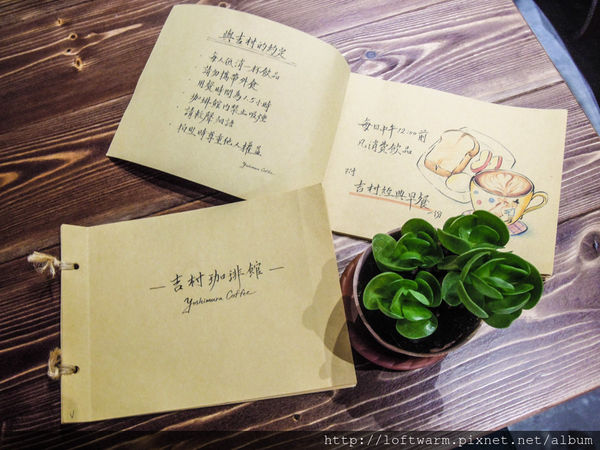 與吉村的約定
· 每人低消一杯飲品
· 請勿攜帶外食
· 用餐時間為1.5小時
· 珈琲館內禁止吸煙
· 請輕聲細語
· 拍照時尊重他人權益
Yoshimura Coffee
每日中午12:00前
凡消費飲品
附
吉村經典早餐
一份
— 吉村珈琲館 —
Yoshimura Coffee
http://loftwarm.pixnet.net/album